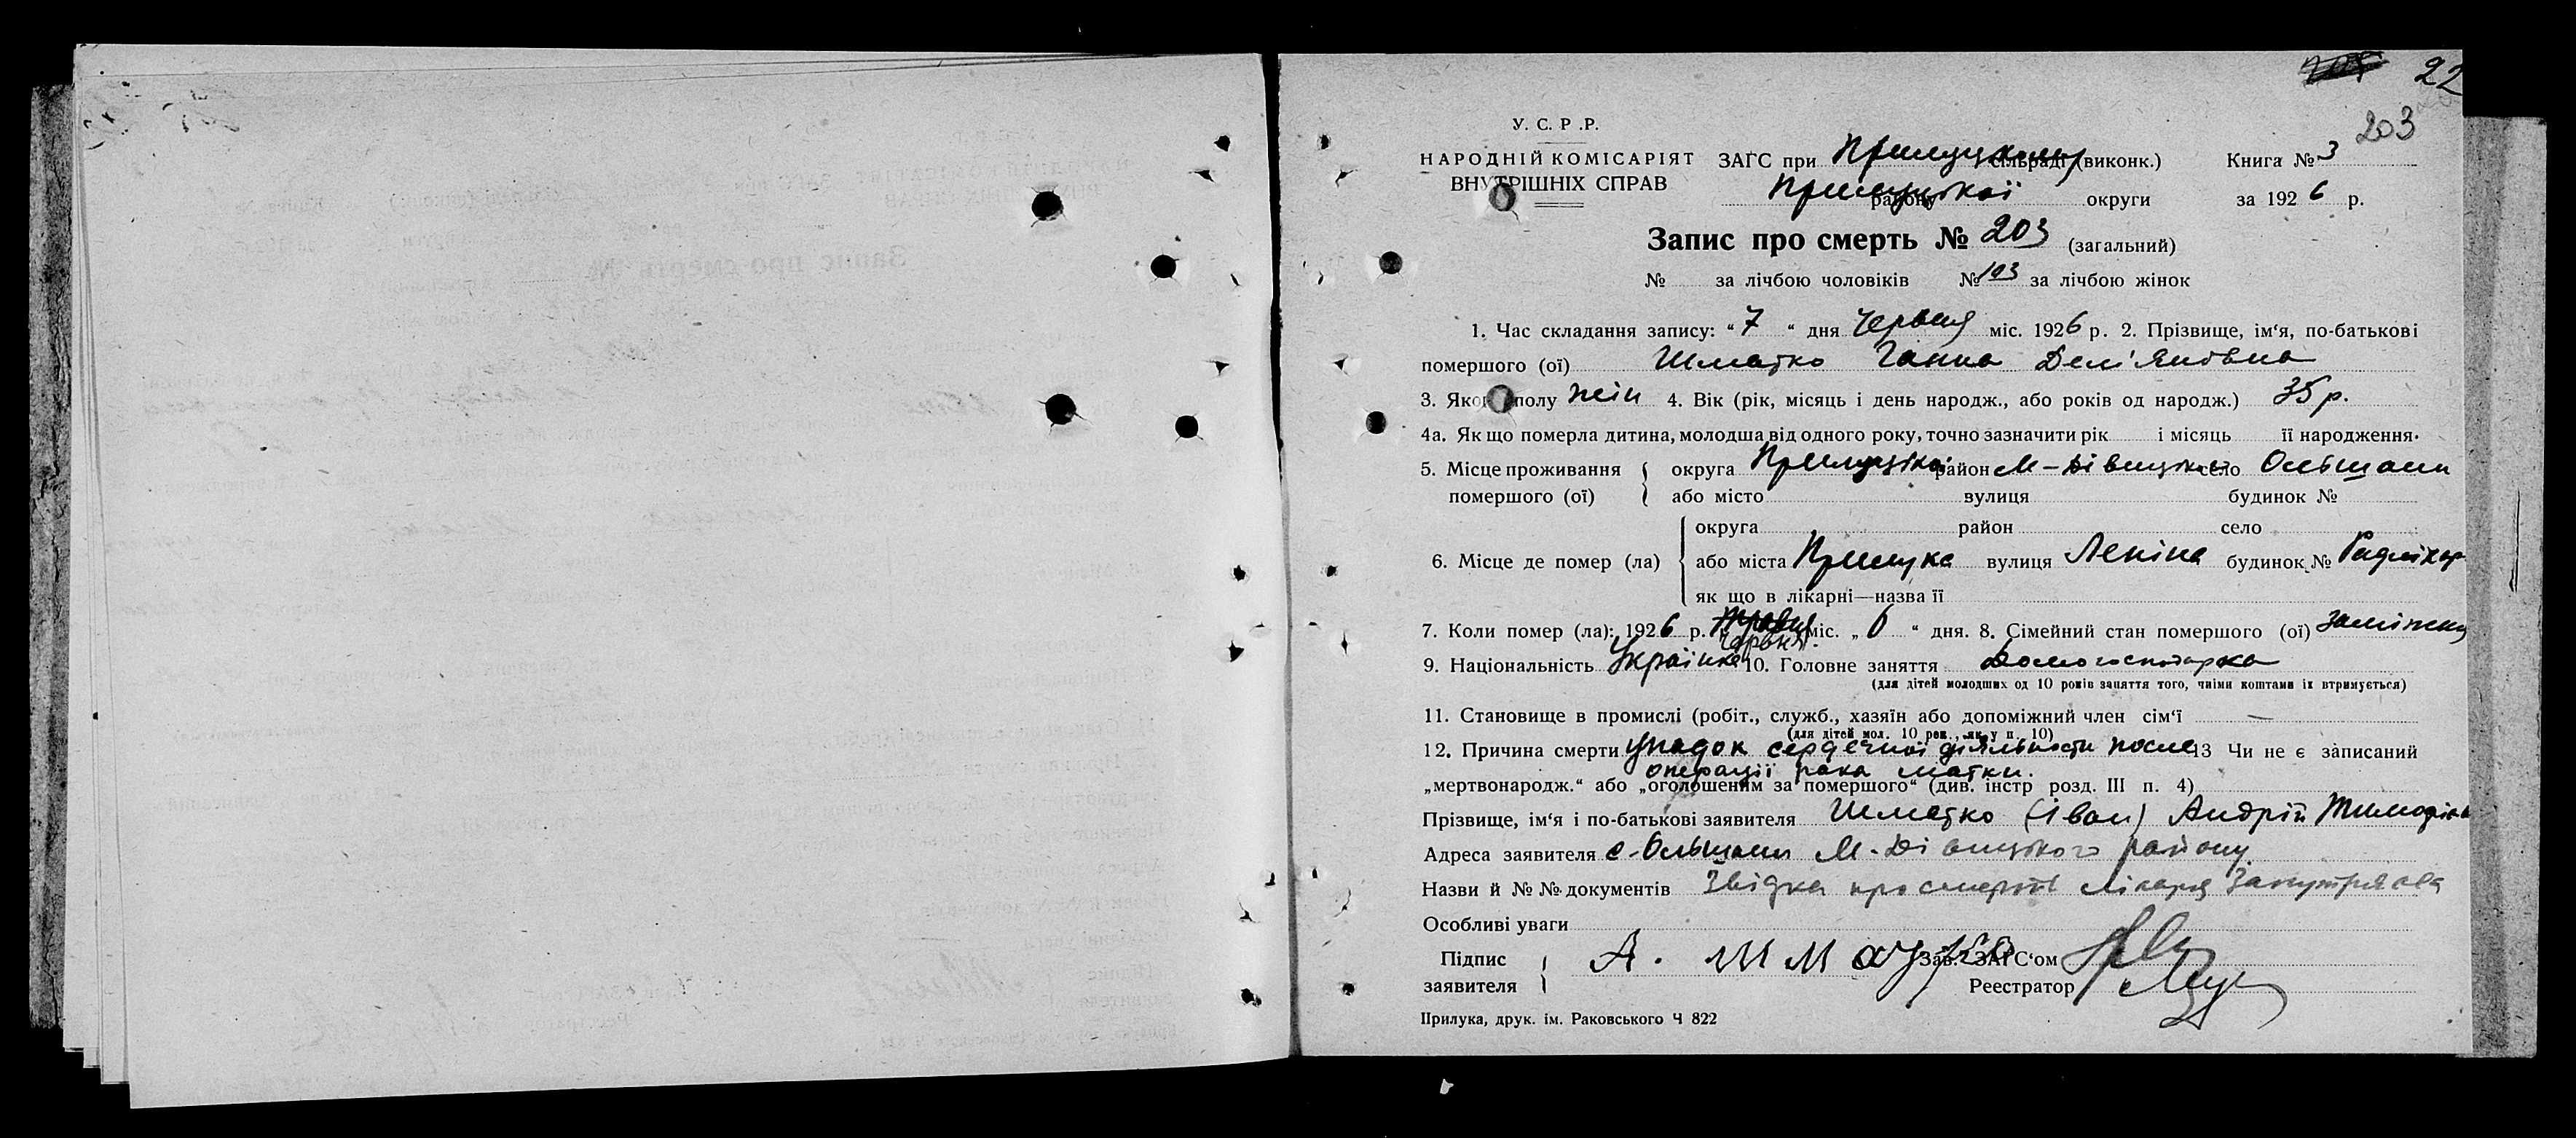 22
203
У. С. Р .Р.
НАРОДНІЙ КОМІСАРІЯТ ЗАГС при Прилуцькому сільраді (виконк.) Книга № 3
ВНУТРІШНІХ СПРАВ Прилуцької району округи за 1926 р.
Запис про смерть № 203 (загальний)
№ за лічбою чоловіків № 103 за лічбою жінок
1. Час складання запису: “ 7 “ дня Червня міс. 1926 р. 2. Прізвище, ім‘я, по-батькові
помершого (ої) Шматко Ганна Дем'яновна
3. Якої полу жін 4. Вік (рік, місяць і день народж., або років од народж.) 35 р.
4а. Як що померла дитина, молодша від одного року, точно зазначити рік і місяць її народження.
5. Місце проживання округа Прилуцької район М-Дівицький село Ольшани
помершого (ої) або місто вулиця будинок №
округа район село
6. Місце де помер (ла) або міста Прилука вулиця Леніна будинок №
як що в лікарні—назва її
7. Коли помер (ла): 1926 р. Червня міс. „ 6 “ дня. 8. Сімейний стан помершого (ої) заміжня
9. Національність Українка 10. Головне заняття Домогосподарка
(для дітей молодших од 10 років заняття того, чиїми коштами їх втримується)
11. Становище в промислі (робіт., служб., хазяїн або допоміжний член сім‘ї —
(для дітей мол. 10 рок., як у п. 10)
12. Причина смерти упадок сердечної діяльности после 13 Чи не є записаний
операції рака матки.
„мертвонародж.“ або „оголошеним за помершого“ (див. інстр розд. III п. 4)
Прізвище, ім‘я і по-батькові заявителя Шматко (Іван) Андрій
Адреса заявителя с-Ольшани М-Дівицького району
Назви й № № документів Звідка про смерть лікаря
Особливі уваги
Підпис А. Шматко Зав. ЗАГС‘ом
заявителя Реестратор
Прилука, друк. ім. Раковського Ч 822